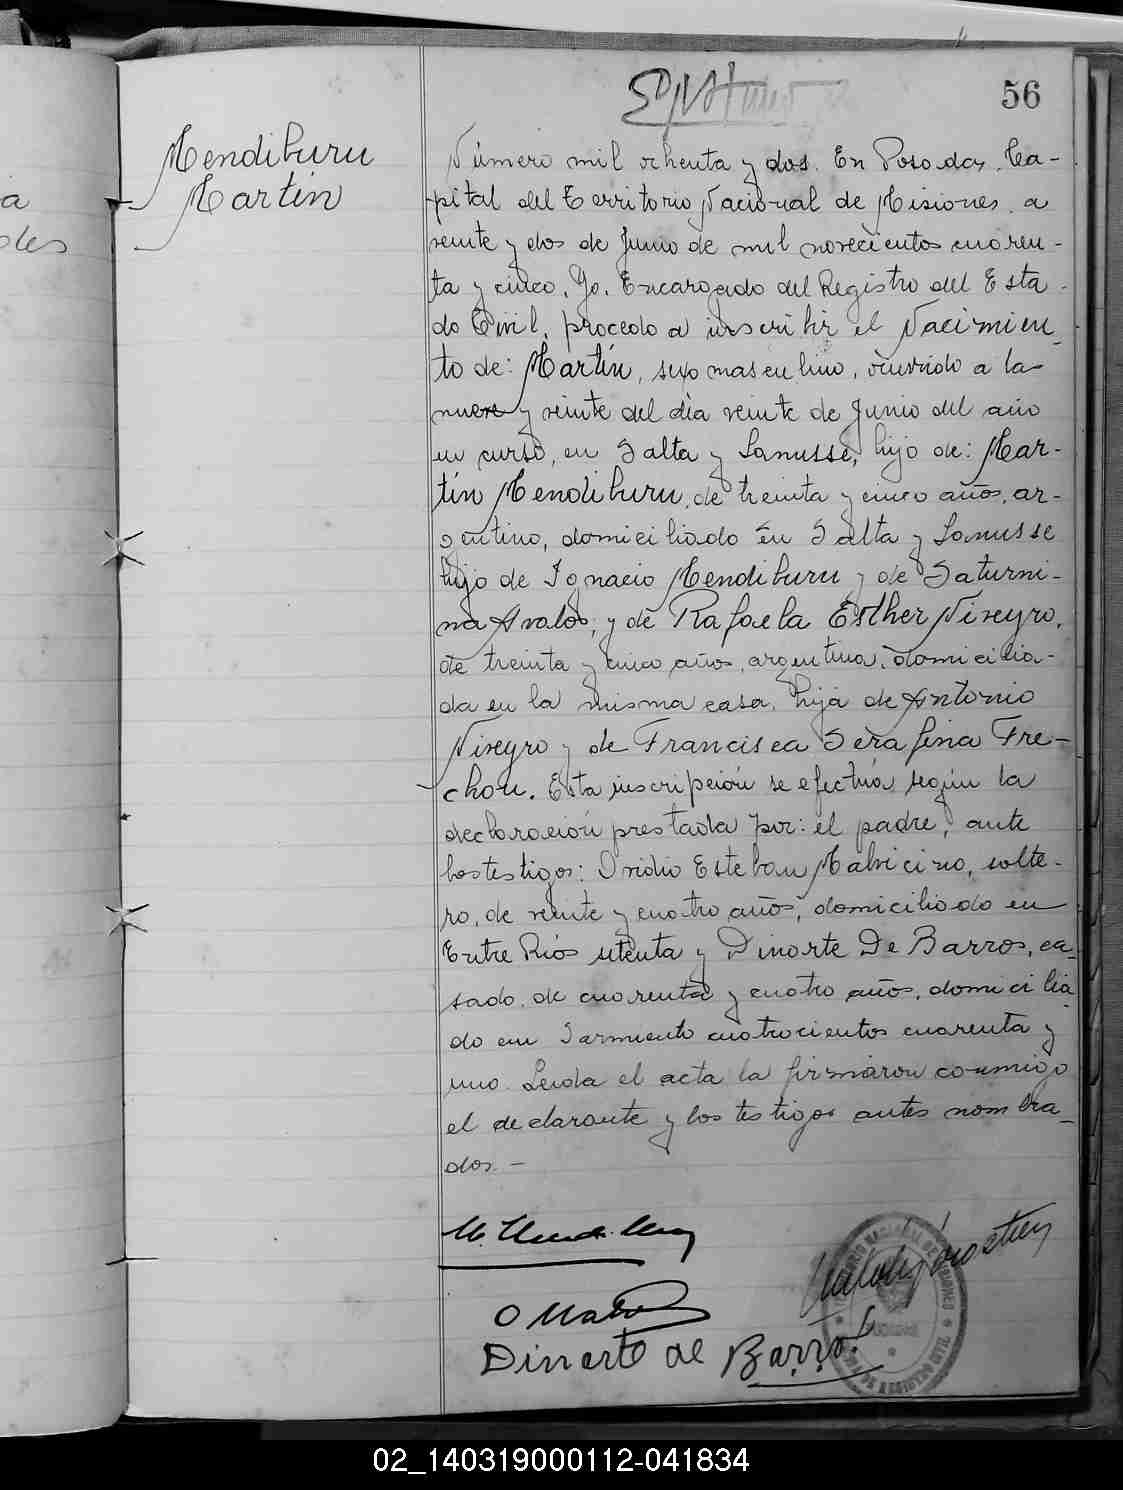 56
Mendiburu
Martín
a
des
Número mil ochenta y dos. En Posadas, Ca-
pital del Territorio Nacional de Misiones, a
veinte y dos de Junio de mil novecientos cuaren-
ta y cinco, Yo, Encargado del Registro del Esta-
do Civil, procedo a inscribir el Nacimien-
to de: Martín, sexo masculino, ocurrido a la
nueve y veinte del día veinte de Junio del año
en curso, en Salta y Lanusse, hijo de: Mar-
tín Mendiburu, de treinta y cinco años, ar-
gentino, domiciliado en Salta y Lanusse
hijo de Ignacio Mendiburu y de Saturni-
na Avalos; y de Rafaela Esther Niveyro,
de treinta y cinco años, argentina, domicilia-
da en la misma casa, hija de Antonio
Niveyro y de Francisca Serafina Fre-
chou. Esta inscripción se efectúa según la
declaración prestada por: el padre, ante
los testigos: Ovidio Esteban Malvicino, solte-
ro, de veinte y cuatro años, domiciliado en
Entre Ríos setenta y Dinarte De Barros, ca-
sado, de cuarenta y cuatro años, domicilia-
do en Sarmiento cuatrocientos cuarenta y
uno. Leída el acta la firmaron conmigo
el declarante y los testigos antes nombra-
dos.-
Dinarte de Barros
02_140319000112-041834